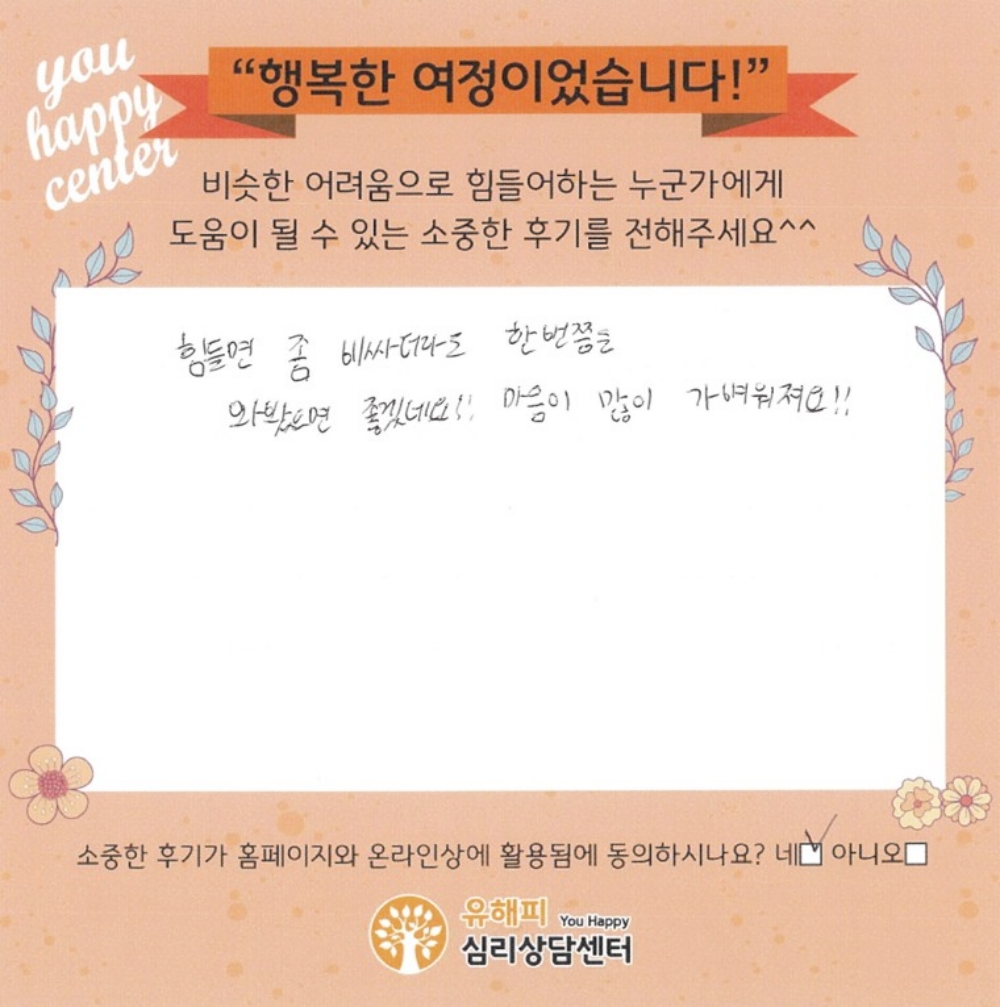 you
happy
center
“행복한 여정이었습니다!”
비슷한 어려움으로 힘들어하는 누군가에게
도움이 될 수 있는 소중한 후기를 전해주세요^^
힘들면 좀 비싸더라도 한번쯤은
와봤으면 좋겠네요!! 마음이 많이 가벼워져요!!
소중한 후기가 홈페이지와 온라인상에 활용됨에 동의하시나요? 네 아니오
유해피 You Happy
심리상담센터